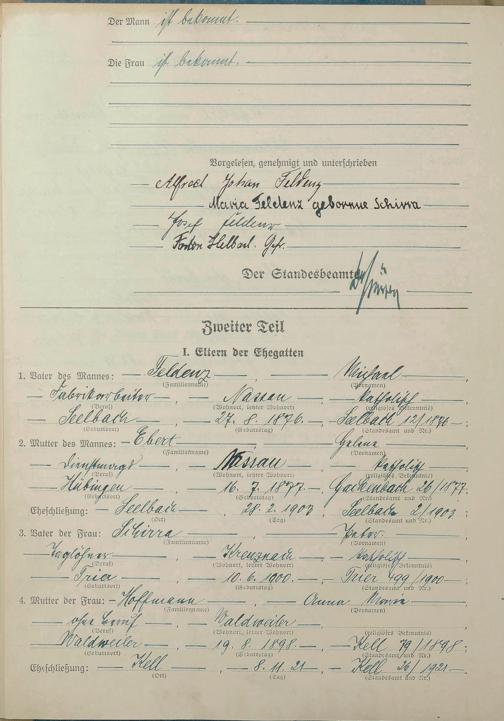 Der Mann ist bekannt.
Die Frau ist bekannt.
Vorgelesen, genehmigt und unterschrieben
Alfred Johan Feldenz
Maria Feldenz geborene Schirra
Josef Feldenz
Anton
Der Standesbeamte
Zweiter Teil
I. Eltern der Ehegatten
1. Vater des Mannes: Feldenz, Michael,
(Familienname) (Vornamen)
Fabrikarbeiter, Nassau, katholisch
(Beruf) (Wohnort, letzter Wohnort) (religiöses Bekenntnis)
Seelbach 27. 8. 1876. Seelbach 12/1876;
(Geburtsort) (Geburtstag) (Standesamt und Nr.)
2. Mutter des Mannes: Ebert, Helene,
(Familienname) (Vornamen)
Dienstmagd, Nassau katholisch
(Beruf) (Wohnort, letzter Wohnort) (religiöses Bekenntnis)
Hübingen 16. 7. 1877. Gackenbach 26/1877.
(Geburtsort) (Geburtstag) (Standesamt und Nr.)
Eheschließung: Seelbach 28. 2. 1903 Seelbach 2/1903;
(Ort) (Tag) (Standesamt und Nr.)
3. Vater der Frau: Schirra, Peter,
(Familienname) (Vornamen)
Taglöhner Kreuznach katholisch
(Beruf) (Wohnort, letzter Wohnort) (religiöses Bekenntnis)
Trier 10. 6. 1900. Trier 499/1900
(Geburtsort) (Geburtstag) (Standesamt und Nr.)
4. Mutter der Frau: Hoffmann, Anna Maria
(Familienname) (Vornamen)
ohne Beruf, Waldweiler
(Beruf) (Wohnort, letzter Wohnort) (religiöses Bekenntnis)
Waldweiler 19. 8. 1898. Kell 79/1898;
(Geburtsort) (Geburtstag) (Standesamt und Nr.)
Eheschließung: Kell 8. 11. 21 Kell 26/1921.
(Ort) (Tag) (Standesamt und Nr.)